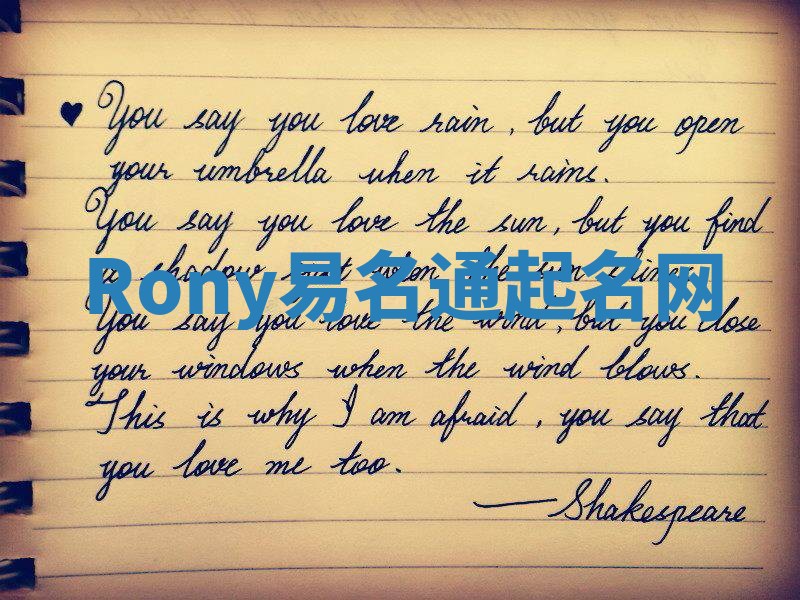 ♥ You say you love rain, but you open
your umbrella when it rains.
You say you love the sun, but you find
a shadow spot when the sun shines.
Rony易名通起名网
You say you love the wind, but you close
your windows when the wind blows.
This is why I am afraid, you say that
you love me too.
—Shakespeare